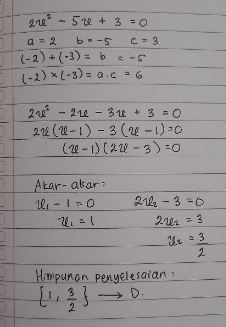 2x² - 5x + 3 = 0
a = 2 b = -5 c = 3
(-2) + (-3) = b = -5
(-2) × (-3) = a.c = 6
2x² - 2x - 3x + 3 = 0
2x(x-1) - 3(x-1) = 0
(x-1)(2x-3) = 0
Akar-akar:
x₁ - 1 = 0 2x₂ - 3 = 0
x₁ = 1 2x₂ = 3
x₂ = 3/2
Himpunan penyelesaian:
{1, 3/2} → D.